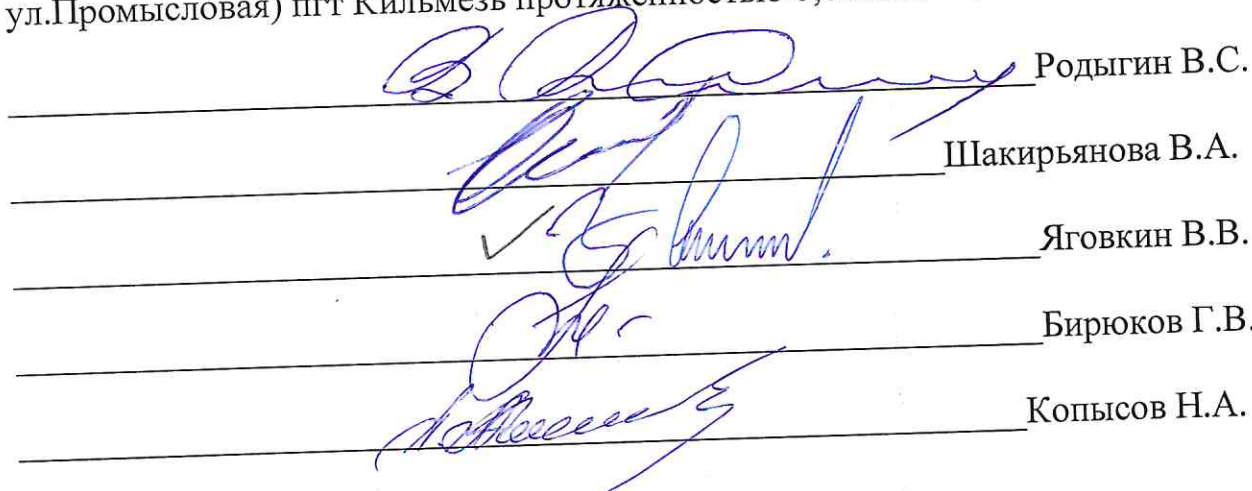 ул.Промысловая) пгт Кильмезь протяженностью
Родыгин В.С.
Шакирьянова В.А.
Яговкин В.В.
Бирюков Г.В.
Копысов Н.А.